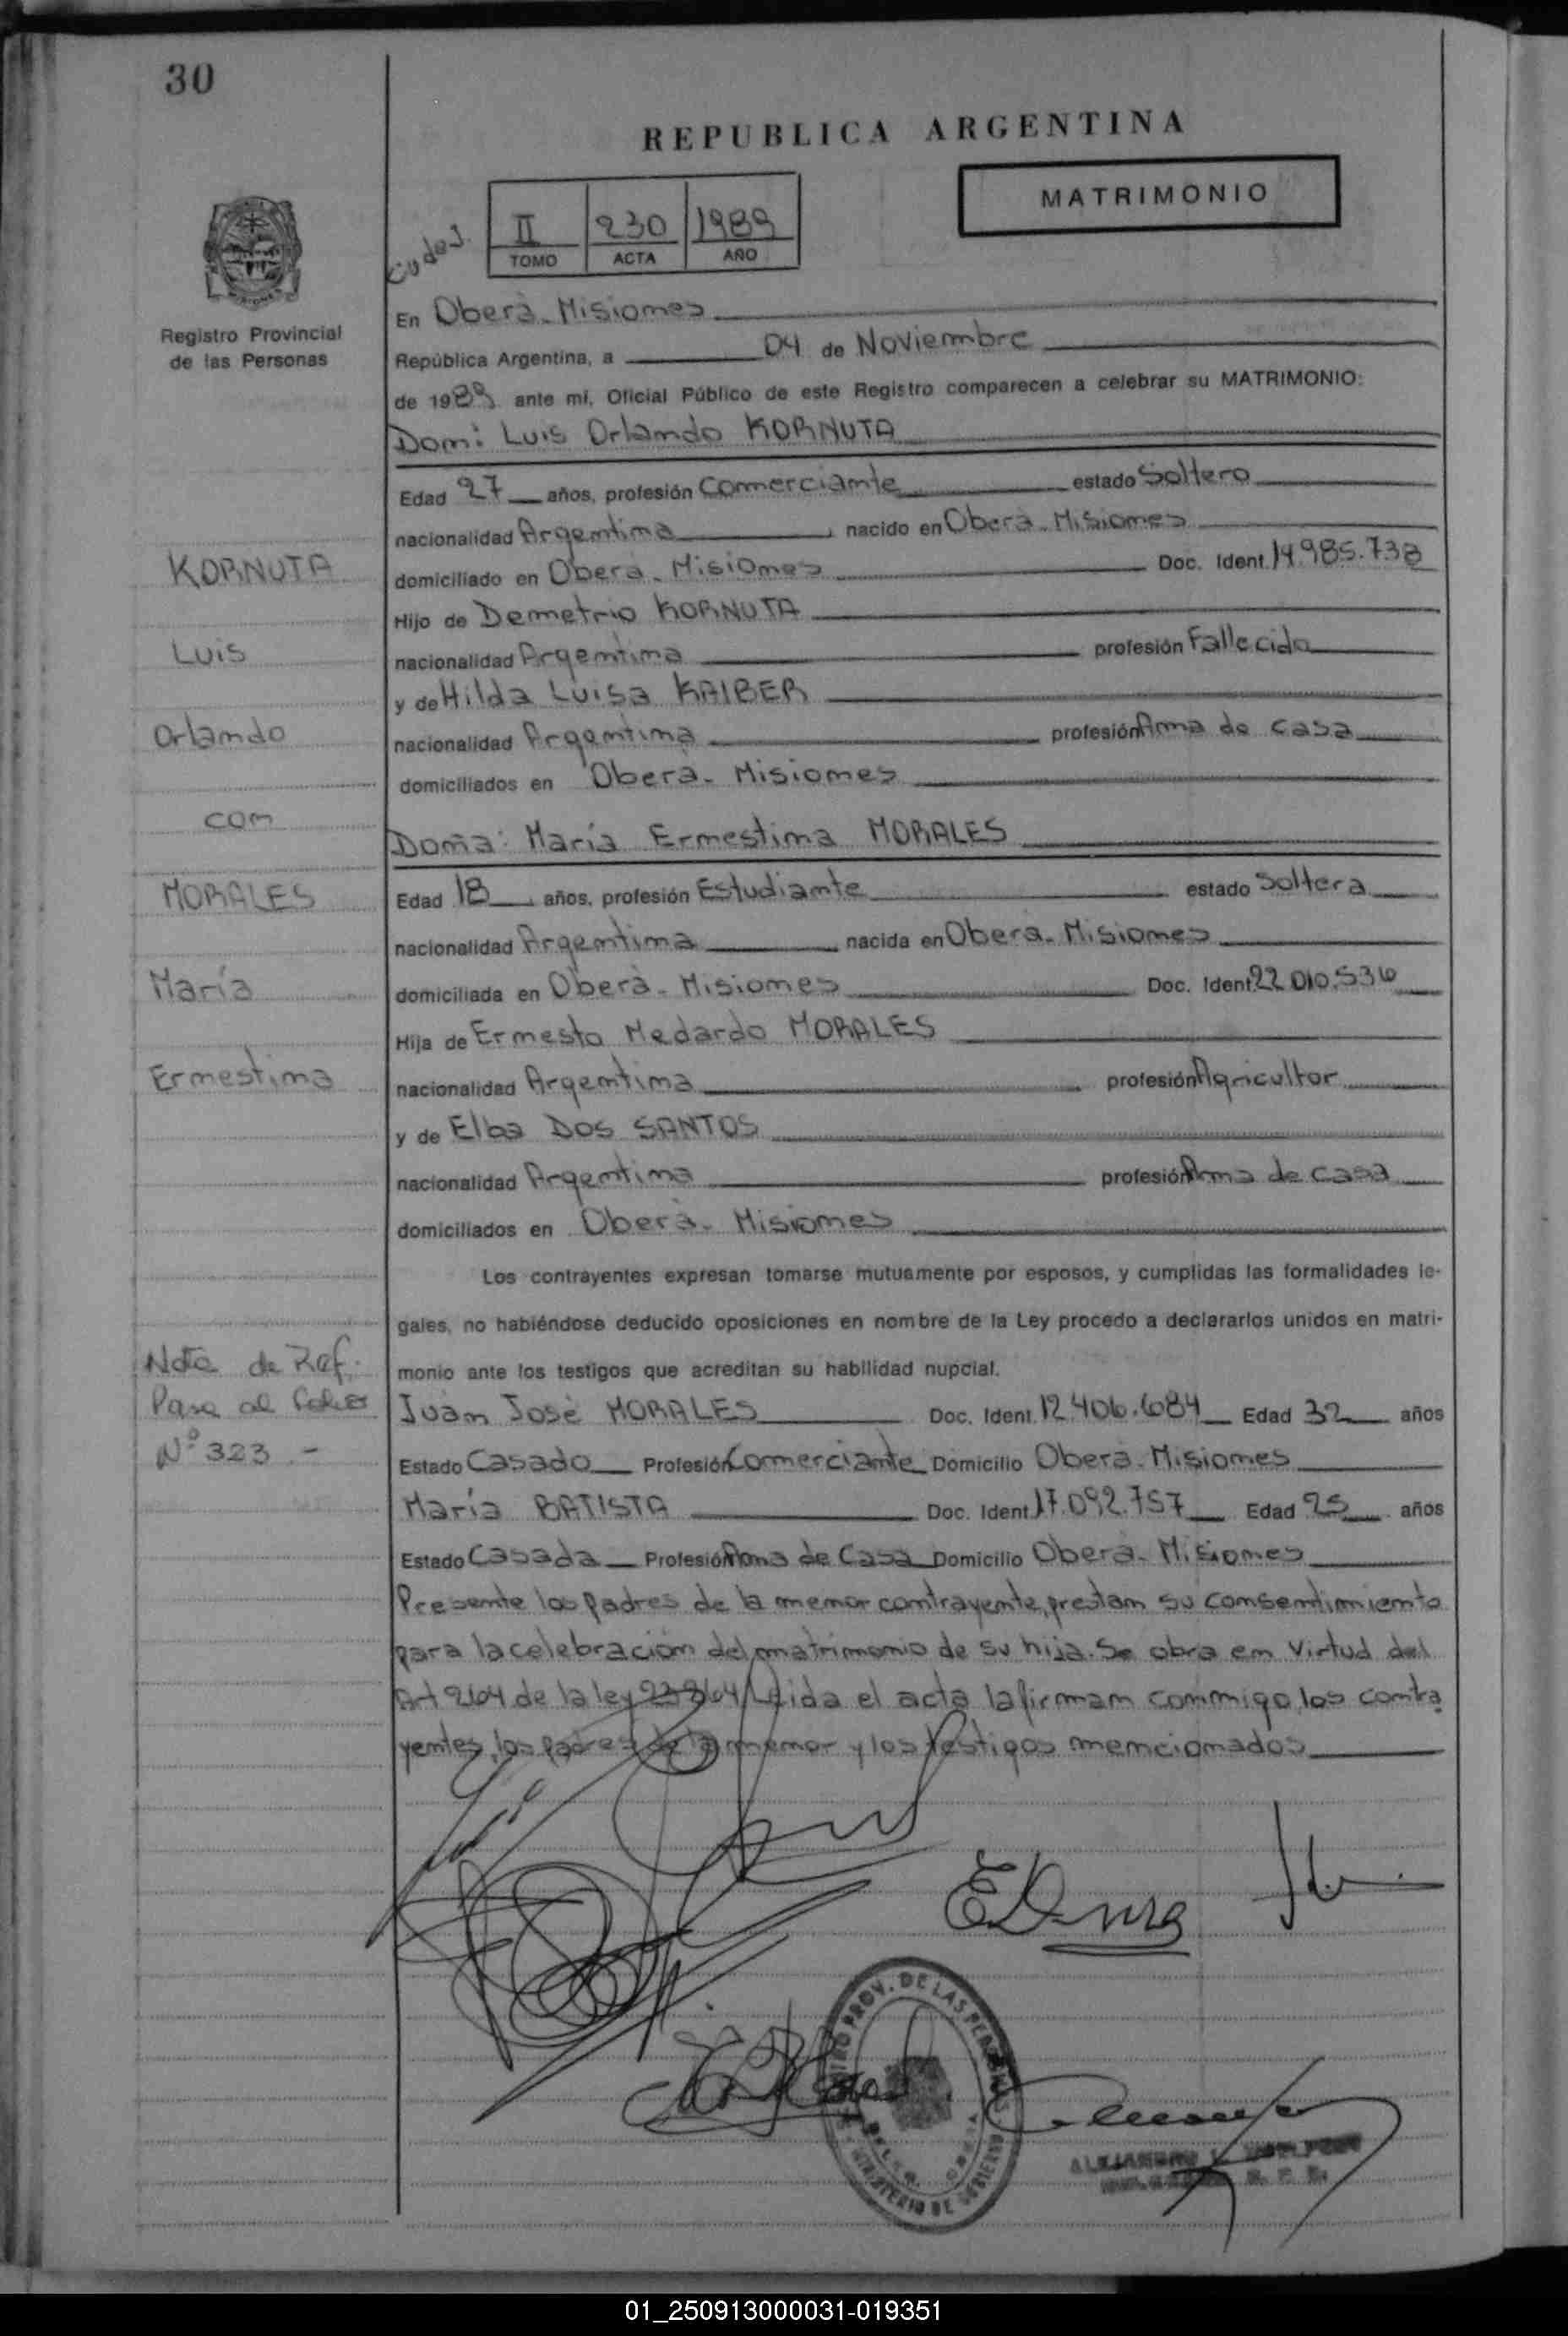 30
REPUBLICA ARGENTINA
MATRIMONIO
II 230 1989
TOMO ACTA AÑO
MISIONES
Registro Provincial
de las Personas
En Oberá-Misiones
República Argentina, a 04 de Noviembre
de 1989 ante mí, Oficial Público de este Registro comparecen a celebrar su MATRIMONIO:
Don: Luis Orlando KORNUTA
Edad 27 años, profesión Comerciante estado Soltero
nacionalidad Argentina, nacido en Oberá-Misiones
KORNUTA
domiciliado en Oberá-Misiones Doc. Ident. 14.985.738
Hijo de Demetrio KORNUTA
Luis
nacionalidad Argentina profesión Fallecido
y de Hilda Luisa KAIBER
Orlando
nacionalidad Argentina profesión Ama de casa
domiciliados en Oberá-Misiones
con
Doña: María Ernestina MORALES
MORALES
Edad 18, años, profesión Estudiante estado Soltera
nacionalidad Argentina nacida en Oberá-Misiones
María
domiciliada en Oberá-Misiones Doc. Ident. 22.010.536
Hija de Ernesto Medardo MORALES
Ernestina
nacionalidad Argentina profesión Agricultor
y de Elba DOS SANTOS
nacionalidad Argentina profesión Ama de casa
domiciliados en Oberá-Misiones
Los contrayentes expresan tomarse mutuamente por esposos, y cumplidas las formalidades le-
gales, no habiéndose deducido oposiciones en nombre de la Ley procedo a declararlos unidos en matri-
monio ante los testigos que acreditan su habilidad nupcial.
Nota de Ref.
Pasa al folio
Nº 323.-
Juan José MORALES Doc. Ident. 12.406.684 Edad 32 años
Estado Casado Profesión Comerciante Domicilio Oberá-Misiones
María BATISTA Doc. Ident. 17.092.757 Edad 25 años
Estado Casada Profesión Ama de Casa Domicilio Oberá-Misiones
Presente los padres de la menor contrayente, prestan su consentimiento
para la celebración del matrimonio de su hija. Se obra en Virtud del
Art 264 de la ley 23264. Leida el acta la firman conmigo, los contra
yentes, los padres de la menor y los testigos mencionados
PROV. DE LAS PERSONAS
MINISTERIO DE GOBIERNO
01_250913000031-019351